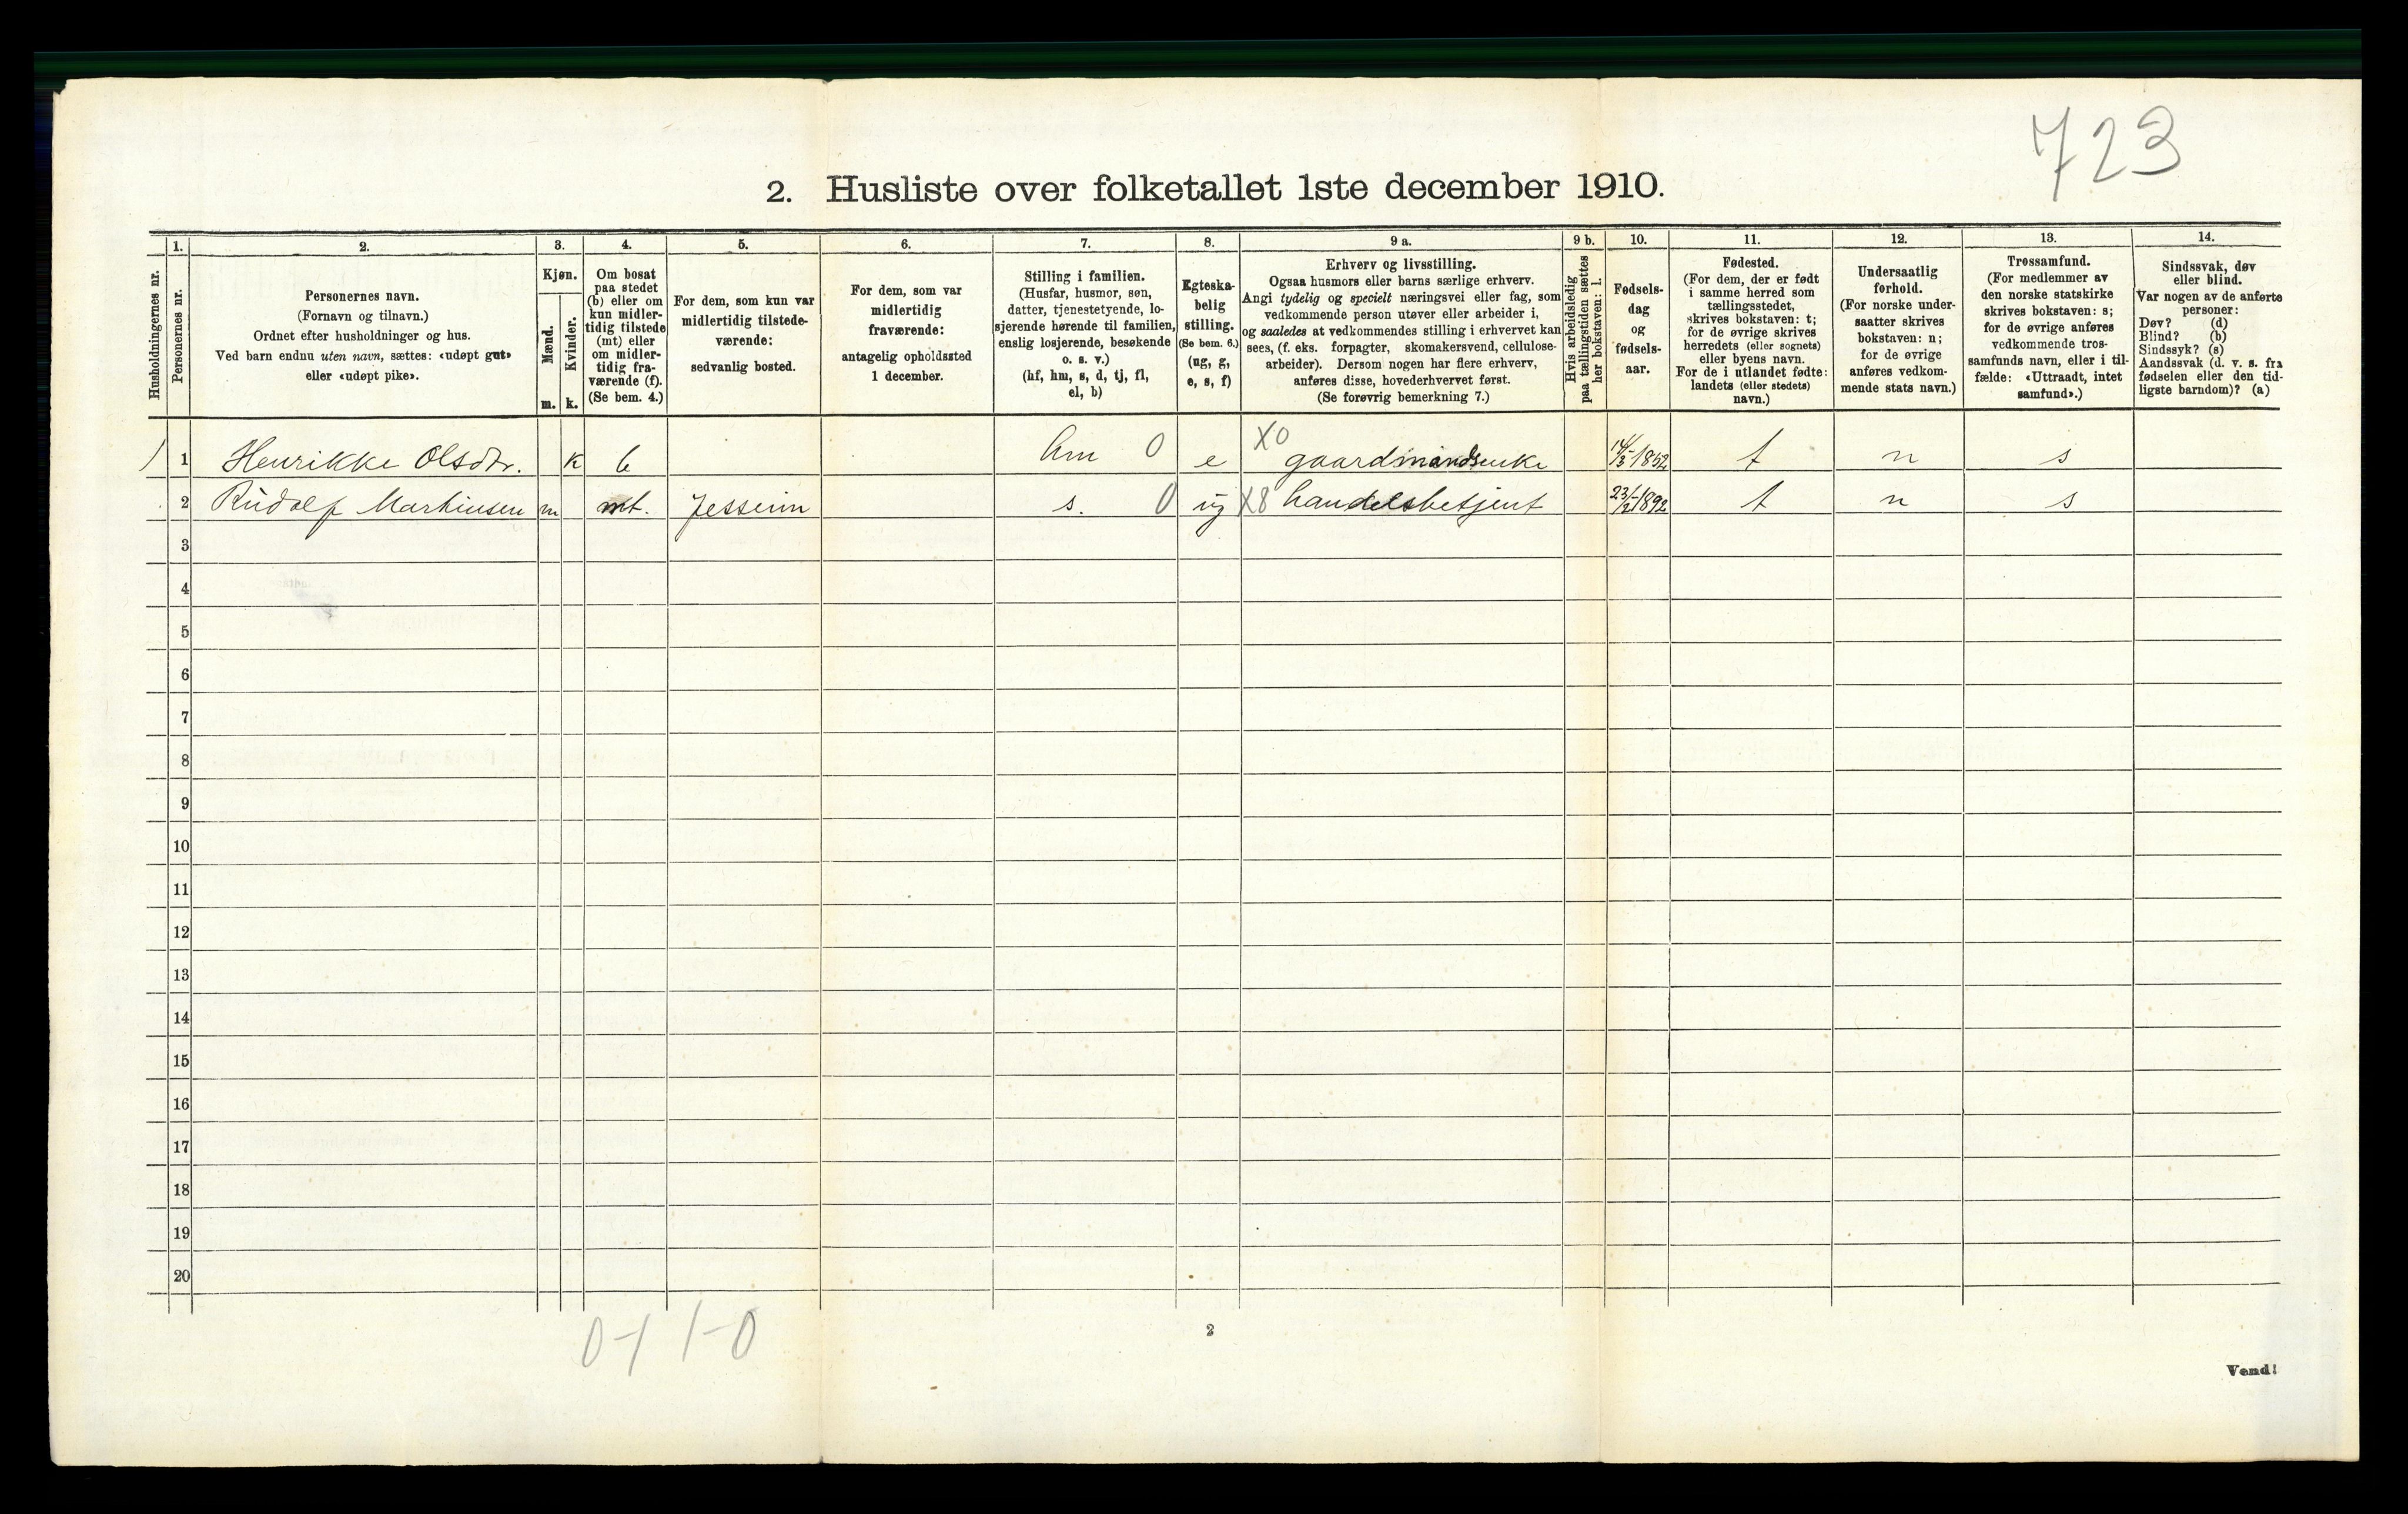 723
2. Husliste over folketallet 1ste december 1910.
1. 2. 3. 4. 5. 6. 7. 8. 9 a. 9 b. 10. 11. 12. 13. 14.
Husholdningernes nr.
Personernes nr.
Personernes navn.
(Fornavn og tilnavn.)
Ordnet efter husholdninger og hus.
Ved barn endnu uten navn, sættes: «udøpt gut»
eller «udøpt pike».
Kjøn.
Mænd.
Kvinder.
m. k.
Om bosat
paa stedet
(b) eller om
kun midler-
tidig tilstede
(mt) eller
om midler-
tidig fra-
værende (f).
(Se bem. 4.)
For dem, som kun var
midlertidig tilstede-
værende:
sedvanlig bosted.
For dem, som var
midlertidig
fraværende:
antagelig opholdssted
1 december.
Stilling i familien.
(Husfar, husmor, søn,
datter, tjenestetyende, lo-
sjerende hørende til familien,
enslig losjerende, besøkende
o. s. v.)
(hf, hm, s, d, tj, fl,
el, b)
Egteska-
belig
stilling.
(Se bem. 6.)
(ug, g,
e, s, f)
Erhverv og livsstilling.
Ogsaa husmors eller barns særlige erhverv.
Angi tydelig og specielt næringsvei eller fag, som
vedkommende person utøver eller arbeider i,
og saaledes at vedkommendes stilling i erhvervet kan
sees, (f. eks. forpagter, skomakersvend, cellulose-
arbeider). Dersom nogen har flere erhverv,
anføres disse, hovederhvervet først.
(Se forøvrig bemerkning 7.)
Hvis arbeidsledig
paa tællingstiden sættes
her bokstaven: l.
Fødsels-
dag
og
fødsels-
aar.
Fødested.
(For dem, der er født
i samme herred som
tællingsstedet,
skrives bokstaven: t;
for de øvrige skrives
herredets (eller sognets)
eller byens navn.
For de i utlandet fødte:
landets (eller stedets)
navn.)
Undersaatlig
forhold.
(For norske under-
saatter skrives
bokstaven: n;
for de øvrige
anføres vedkom-
mende stats navn.)
Trossamfund.
(For medlemmer av
den norske statskirke
skrives bokstaven: s;
for de øvrige anføres
vedkommende tros-
samfunds navn, eller i til-
fælde: «Uttraadt, intet
samfund».)
Sindssvak, døv
eller blind.
Var nogen av de anførte
personer:
Døv? (d)
Blind? (b)
Sindssyk? (s)
Aandssvak (d. v. s. fra
fødselen eller den tid-
ligste barndom)? (a)
1 Henrikke Olsdtr. k b hm 0 e X0 gaardmandsenke 1852 t n s
2 Rudolf Martinsen m mt. s. 0 ug X8 handelsbetjent 1892 t n s
3
4
5
6
7
8
9
10
11
12
13
14
15
16
17
18
19
20
0-1 1-0
2
Vend!